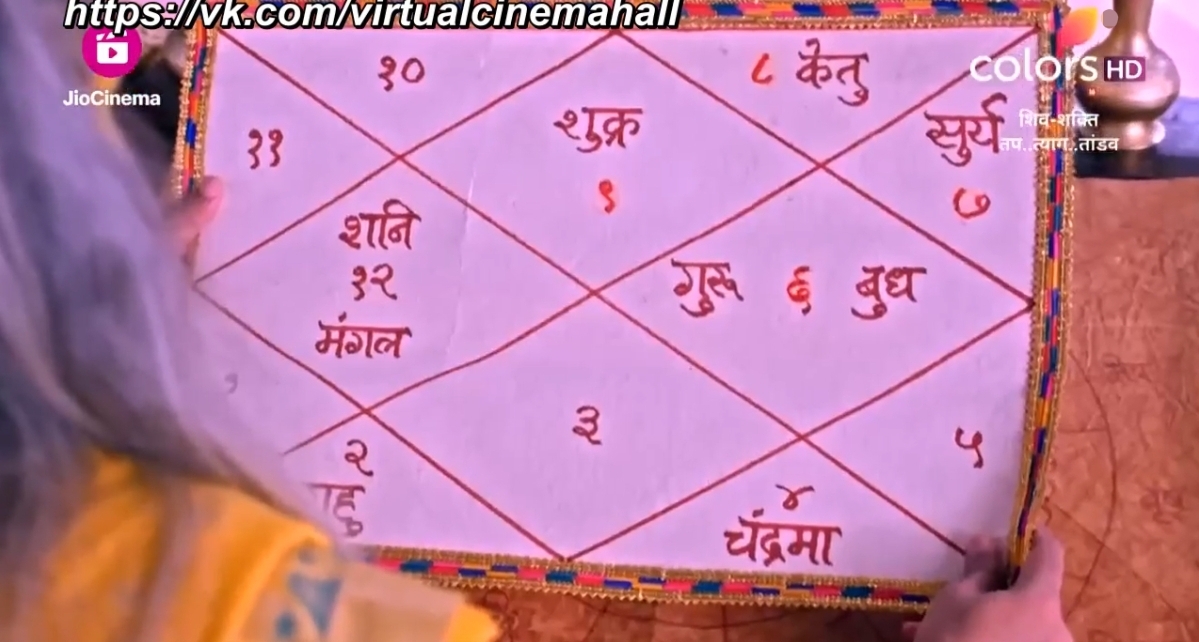 https://vk.com/virtualcinemahall
JioCinema
colors HD
शिव-शक्ति
तप..त्याग..तांडव
१०
८ केतु
११
शुक्र
९
सुर्य
७
शनि
१२
मंगल
गुरू ६ बुध
३
५
२
४
चंद्रमा